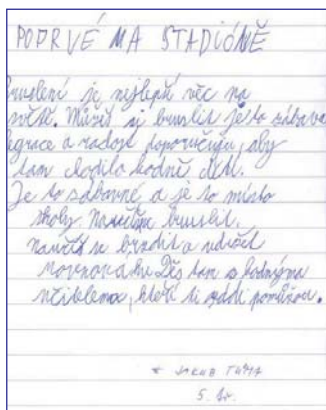 POPRVÉ NA STADIÓNĚ
Bruslení je nejlepší věc na
světě. Můžeš si bruslit je to zábava
legrace a radost doporučuju, aby
tam chodilo hodně dětí.
Je to zábavné a je to místo
školy naučíme bruslit.
naučíš se brzdit a udržet
rovnováhu Děs tam s hodnýma
učitelema, kteří ti rádi pomůžou.
JAKUB
5. tř.